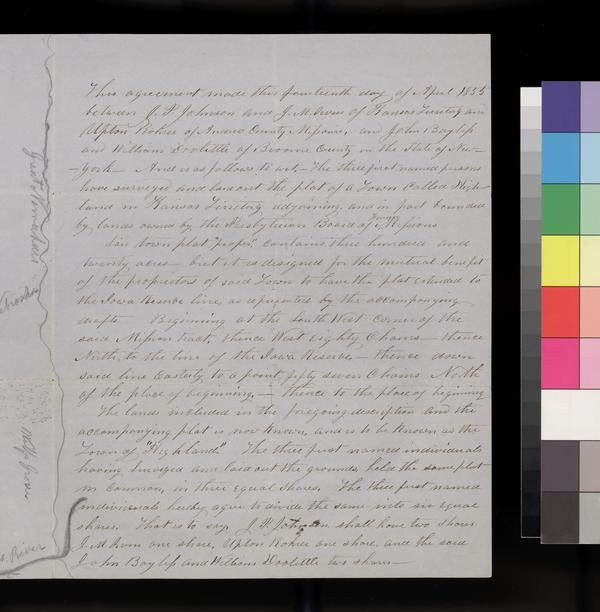 This agreement made this fourteenth day of April 1855
between J. P. Johnson and J. M. Irvin of Kansas Territory and
Upton Rohrer of Andrew County Missouri, and John Bayliss
and William Doolittle of Broome County in the State of New-
-York - And is as follows, to wit,- The three first named persons
have surveyed and laid out the plat of a Town Called High-
land in Kansas Territory adjoining, and in part bounded
by, lands owned by the Presbyterian Board of Foreign Missions
town plat "proper" contains three hundred and
twenty acres - but it is designed for the mutual benefit
of the proprietors of said Town to have the plat extended to
the Iowa Reserve line, as represented by the accompanying
drafts Beginning at the South West Corner of the
said Mission tract, thence West Eighty Chains - thence
North, to the line of the Iowa Reserve - thence down
said line Easterly to a point fifty seven Chains North
of the place of beginning, - thence to the place of begining
The lands included in the foregoing description and the
accompanying plat is now known, and is to be known as the
Town of "Highland." The three first named individuals
having surveyed and laid out the grounds, hold the same plat
in common, in three equal shares. The three first named
individuals hereby agree to divide the same into six equal
shares. That is to say, J. P. Johnson shall have two shares
J. M. Irvin one share, Upton Rohrer one share, and the said
John Bayliss and William Doolittle two shares -
Great Nemaha
Wolf
River